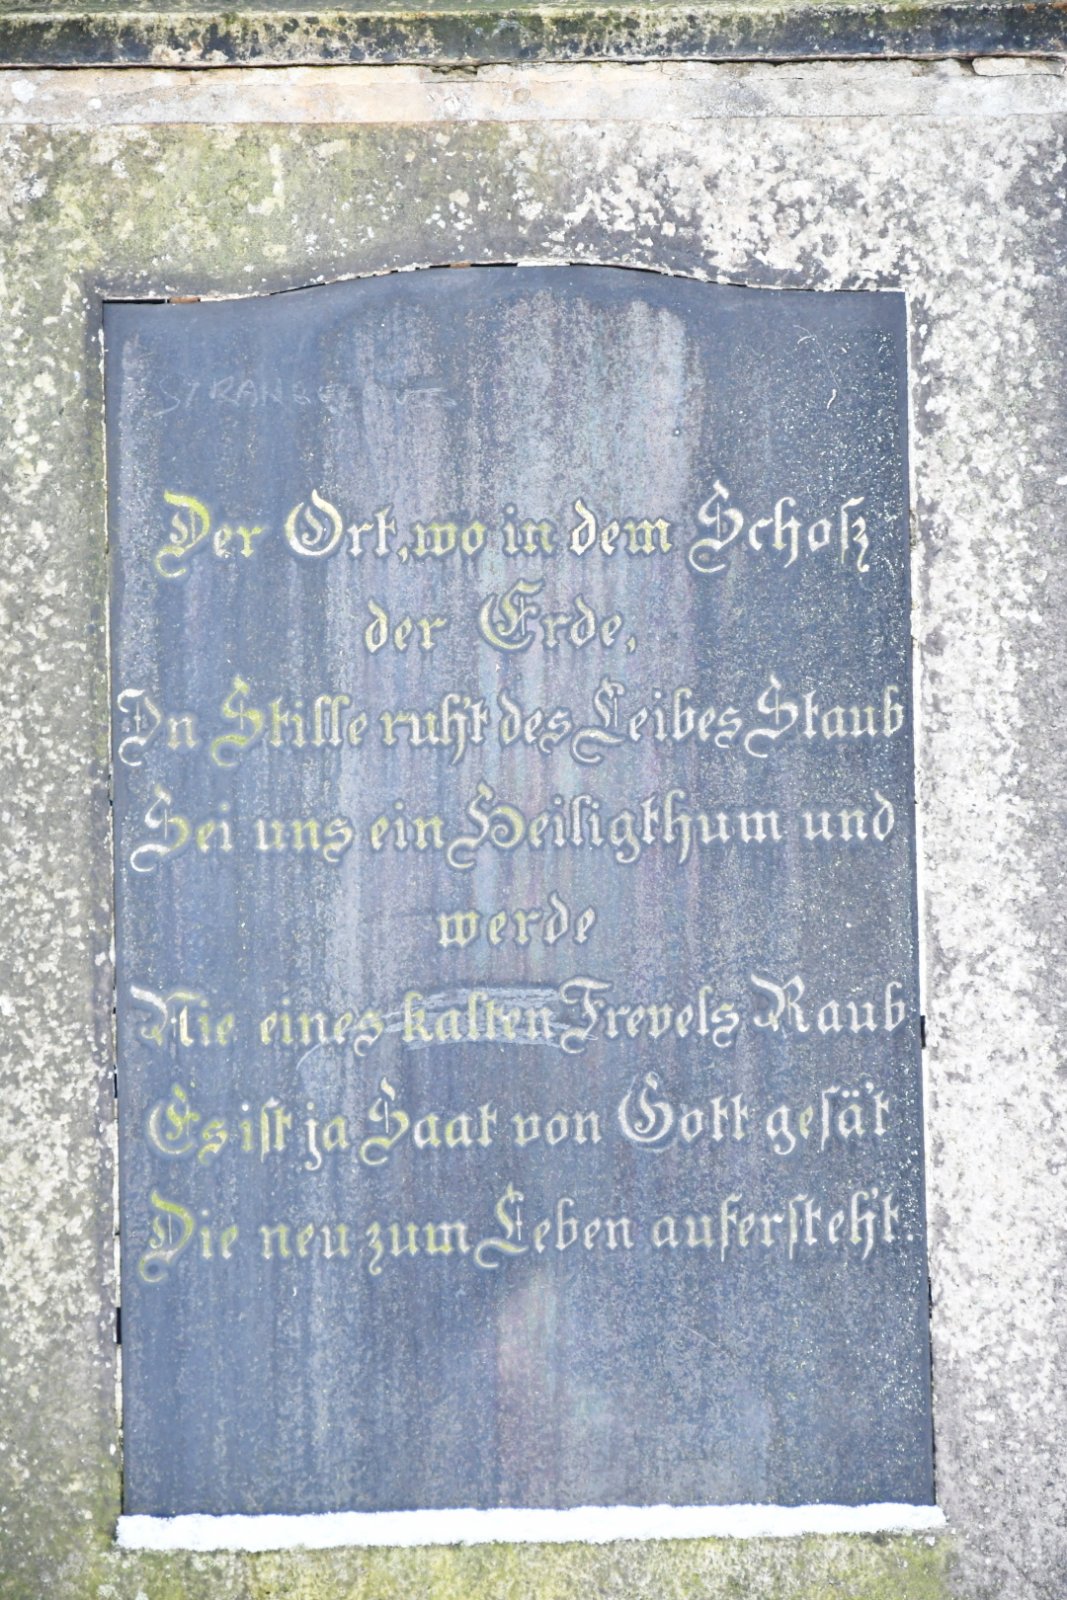 Der Ort, wo in dem Schoß
der Erde,
In Stille ruh't des Leibes Staub
Sei uns ein Heiligthum und
werde
Nie eines kalten Frevels Raub
Es ist ja Saat von Gott gesä't
Die neu zum Leben aufersteh't.